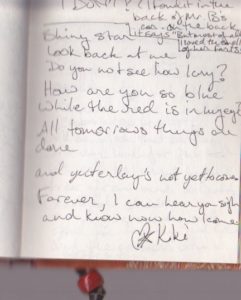 I DON'T? (I found it in the
back of Mr. B's
car - on the back
it says "But most of all
I loved the
of her hair")
Shiny star
Look back at me
Do you not see how I cry?
How are you so blue
While the red is in
All tomorrows things are
done
and yesterday's not yet to come
Forever, I can hear you sigh
and know now how I come
Kiki